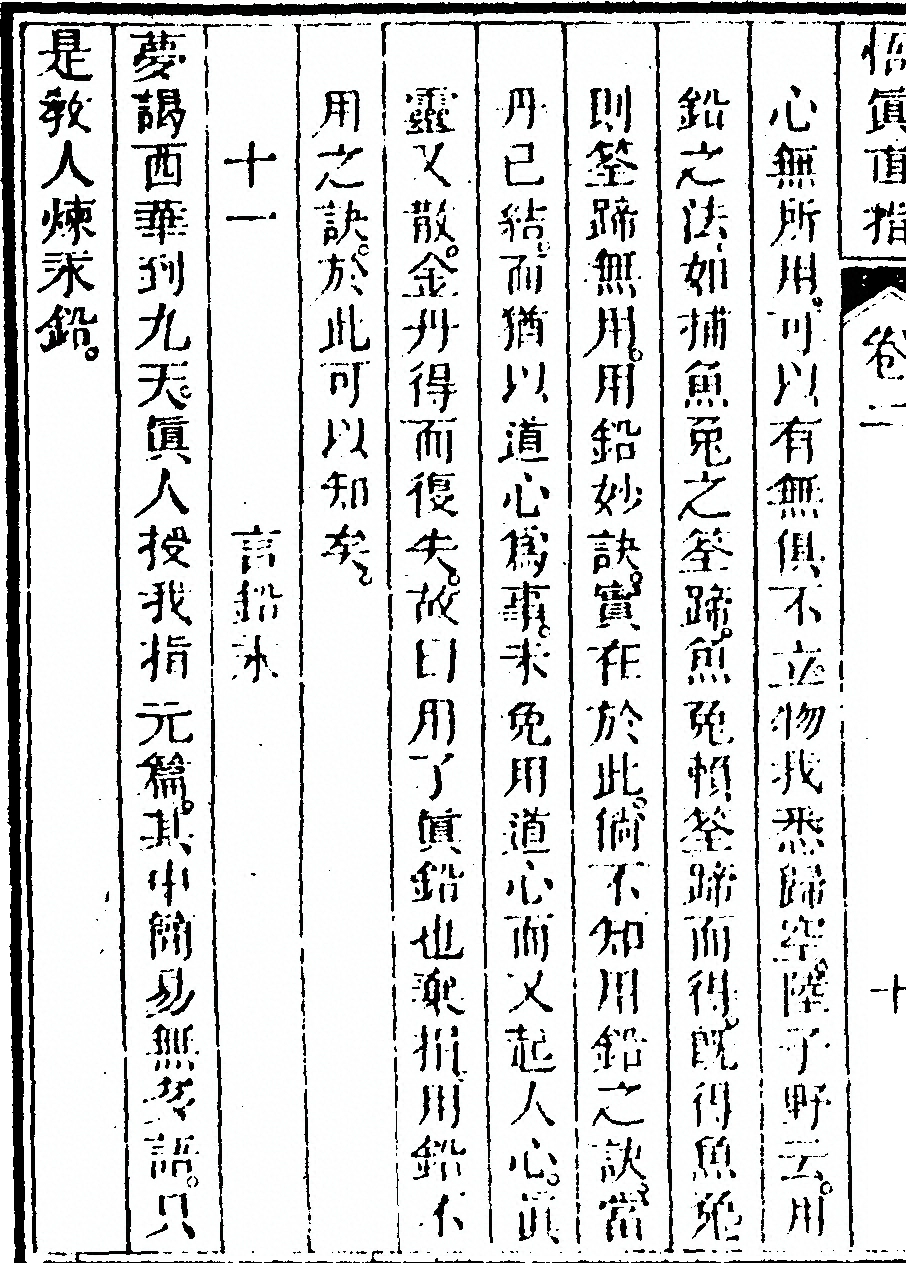 悟眞直指 卷二 十
心無所用。可以有無俱不立物我悉歸空。陸子野云。用
鉛之法如捕魚兔之筌蹄。魚兔賴筌蹄而得。既得魚兔
則筌蹄無用。用鉛妙訣。實在於此。倘不知用鉛之訣。當
丹已結。而猶以道心爲事。未免用道心而又起人心。眞
靈又散。金丹得而復失。故曰用了眞鉛也棄捐用鉛不
用之訣。於此可以知矣。
十一 言鉛汞
夢謁西華到九天。眞人授我指元篇。其中簡易無多語。只
是敎人煉汞鉛。